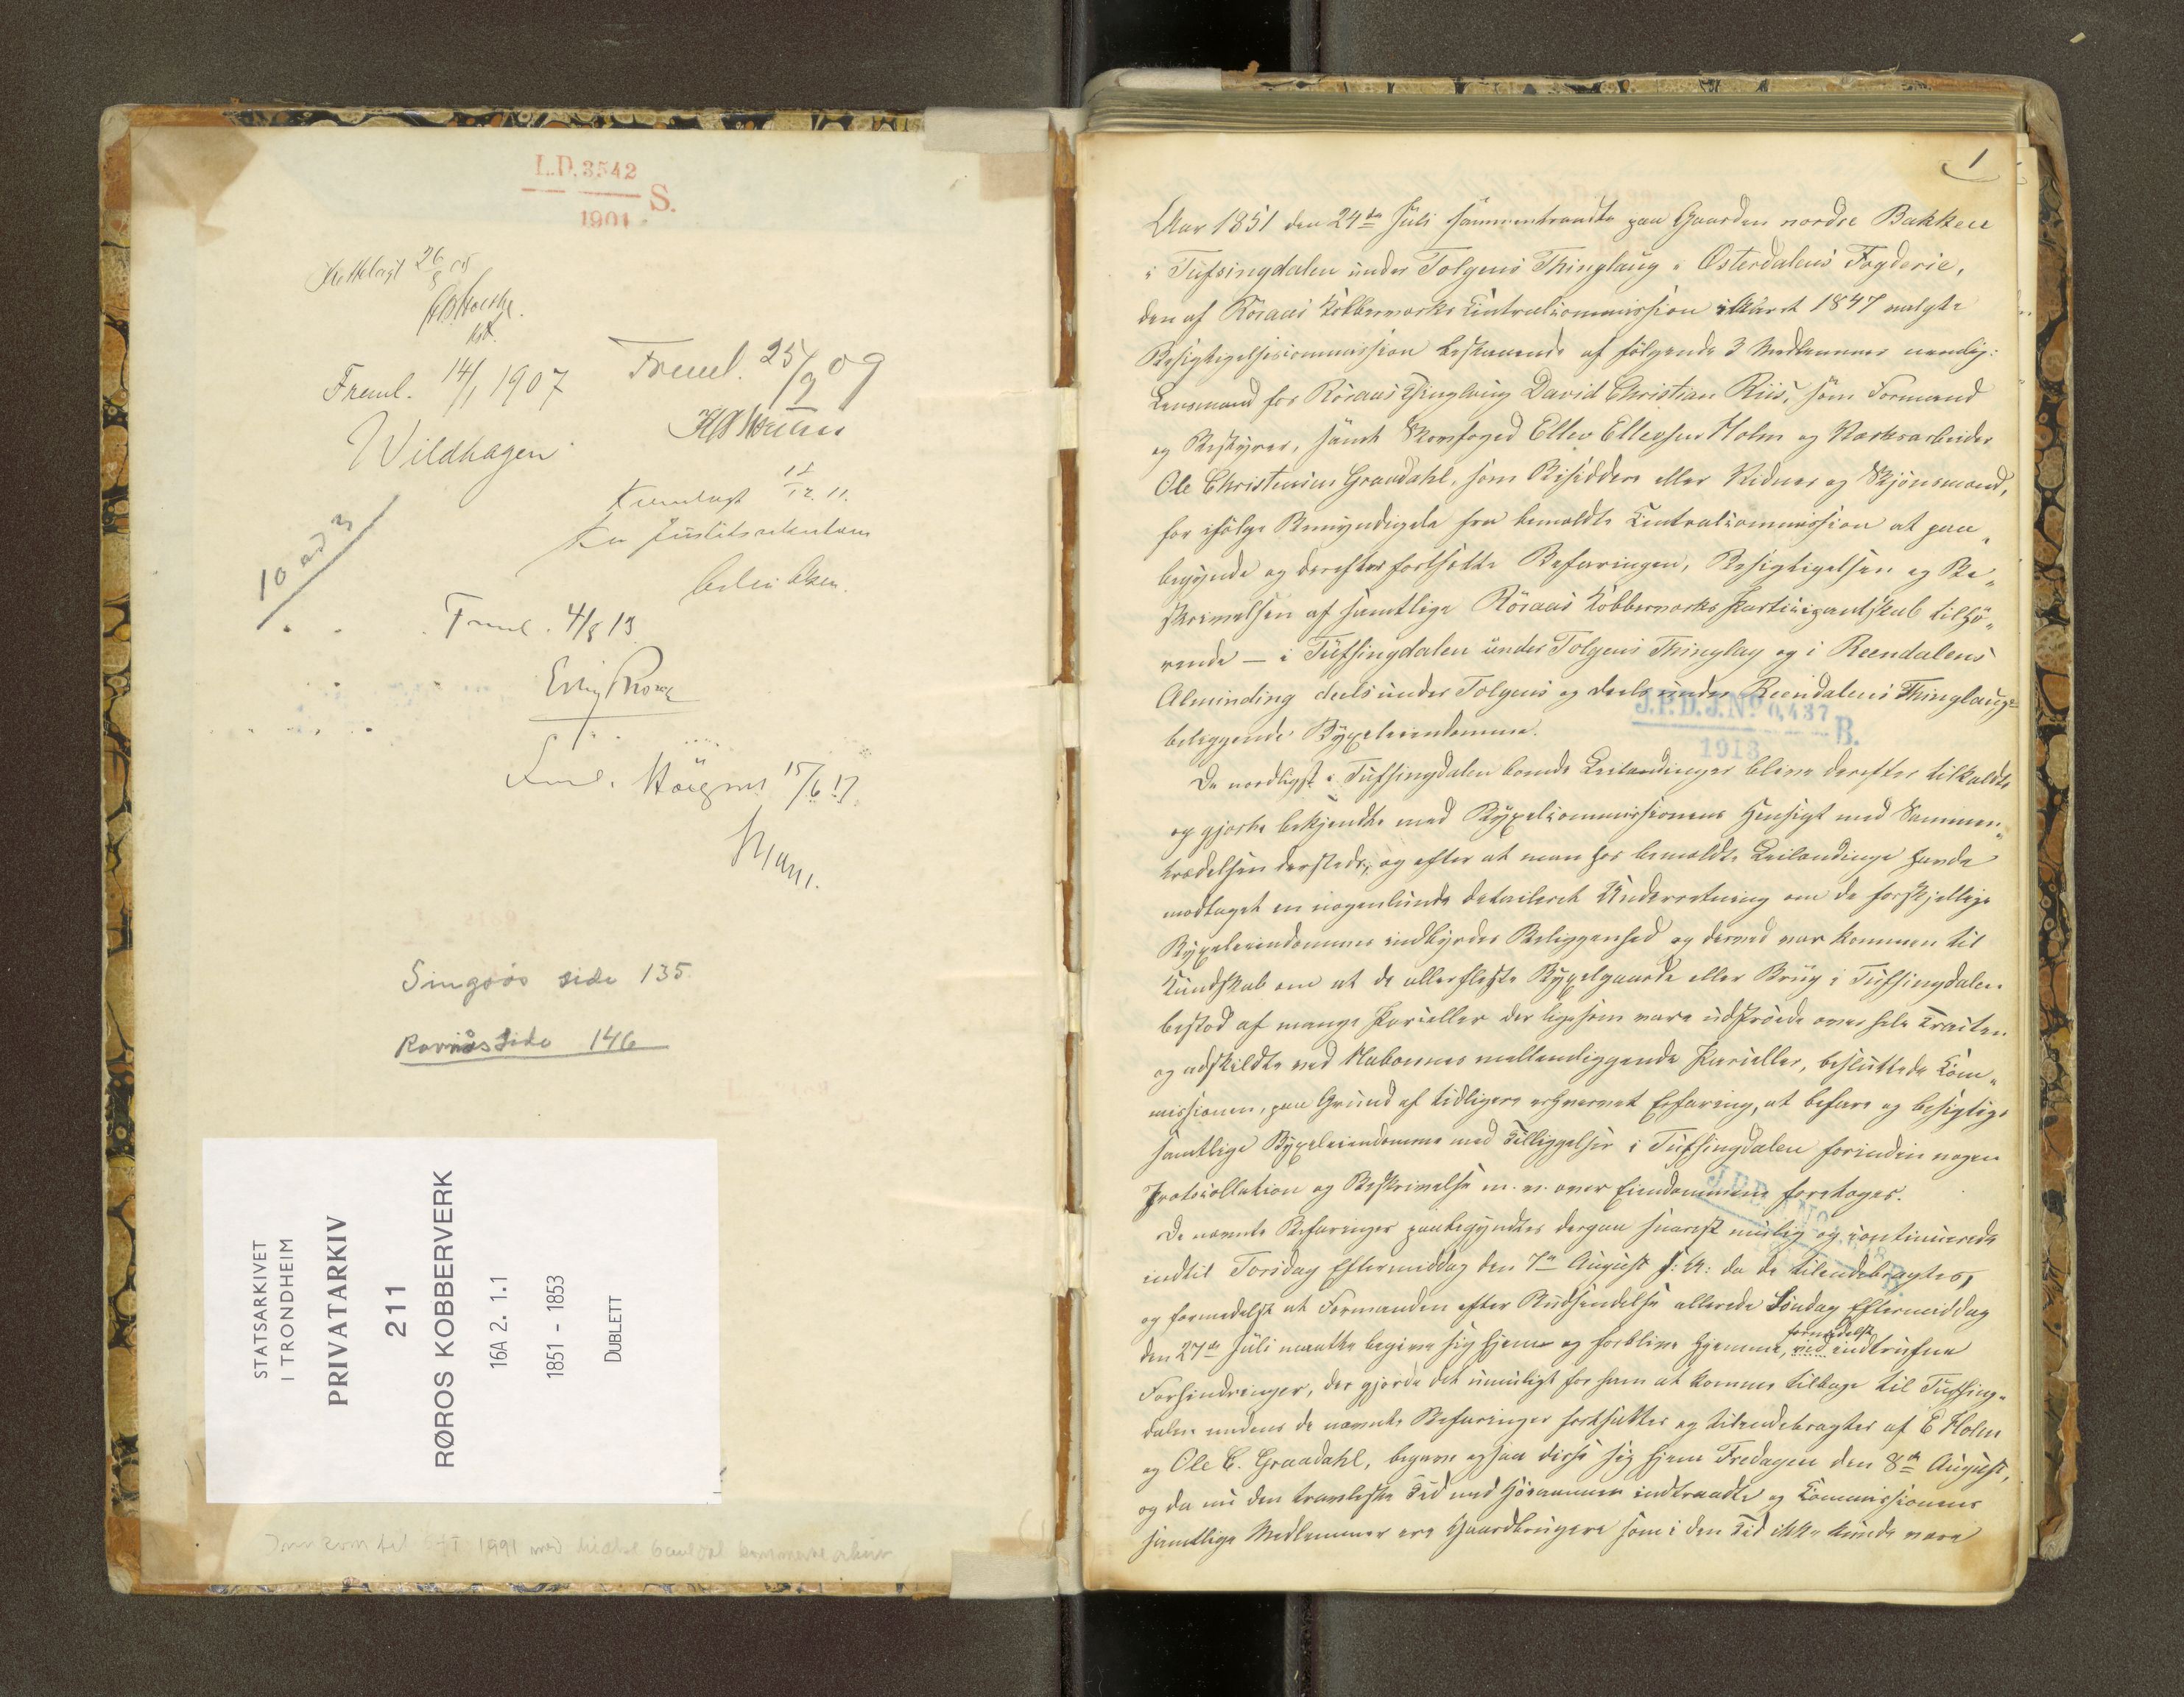 L.D. 3542
1901
S.
Fremlagt 26/8 05
Freml. 14/1 1907
Wildhagen
Freml. 25/9 09
Fremlagt 12. 11.
10 ad 3
Freml. 4/8 13
15/6 17
Singsås side 135
side 146
STATSARKIVET
I TRONDHEIM
PRIVATARKIV
211
RØROS KOBBERVERK
16A 2. 1.1
1851 - 1853
DUBLETT
1991 med
1
Aar 1851 den 24de Juli sammentraadte paa Gaarden nordre Bakken
i Tufsingdalen under Tolgens Thinglaug i Østerdalens Fogderie,
den af Röraas Kobberværks Centralcommission i Marts 1847 valgte
Besigtigelsescommission bestaaende af følgende 3 Medlemmer nemlig:
Lensmand for Röraas Thinglaug David Christian Riis, som Formand
og Bestyrer, samt Skovfoged Ellev Ellevsen Holm og Værksarbeider
Ole Christensen Graadahl, som Bisiddere eller Vidner og Skjønsmænd,
for ifølge Bemyndigelse fra bemeldte Centralcommission at paa„
begynde og derefter fortsætte Befaringen, Besigtigelsen og Be„
skrivelsen af samtlige Röraas Kobberværks Participantskab tilhø„
rende – i Tufsingdalen under Tolgens Thinglag og i Reendalens
Alminding deels under Tolgens og deels under Reendalens Thinglauge
beliggende Bygseleiendomme.
J.P.D.J.No 0,437
1913
B.
De nordligst i Tufsingdalen boende Leilændinger bleve derefter tilkaldte
og gjorte bekjendte med Bygselcommissionens Hensigt med Sammen„
trædelsen dersteds, og efter at man hos bemeldte Leilændinge havde
modtaget en nogenlunde detailleret Underretning om de forskjellige
Bygseleiendommes indbyrdes Beliggenhed og derved var kommen til
Kundskab om at de allerfleste Bygselgaarde eller Brug i Tufsingdalen
bestod af mange Parceller der ligesom vare udstrøede over hele Tracten
og adskildte ved Naboernes mellemliggende Parceller, besluttede Com„
missionen, paa Grund af tidligere erhvervet Erfaring, at befare og besigtige
samtlige Bygseleiendomme med Tilliggelser i Tufsingdalen forinden nogen
Protocollation og Beskrivelse m. v. over Eiendommene foretoges.
De nævnte Befaringer paabegyndtes derpaa snarest mulig og continuerede
indtil Torsdag Eftermiddag den 7de August f: A: da de tilendebragtes,
og formedelst at Formanden efter Budsendelse allerede Søndag Eftermiddag
den 27de Juli maatte begive sig hjem og forblive hjemme, formedelst ved indtrufne
Forhindringer, der gjorde det umuligt for ham at komme tilbage til Tufsing„
dalen medens de nævnte Befaringer fortsattes og tilendebragtes af E Holm
og Ole C. Graadahl, begave ogsaa disse sig hjem Fredagen den 8de August,
og da nu den travleste Tid med Høeaannen indtraadte og Commissionens
samtlige Medlemmer ere Gaardbrugere som i den Tid ikke kunde være